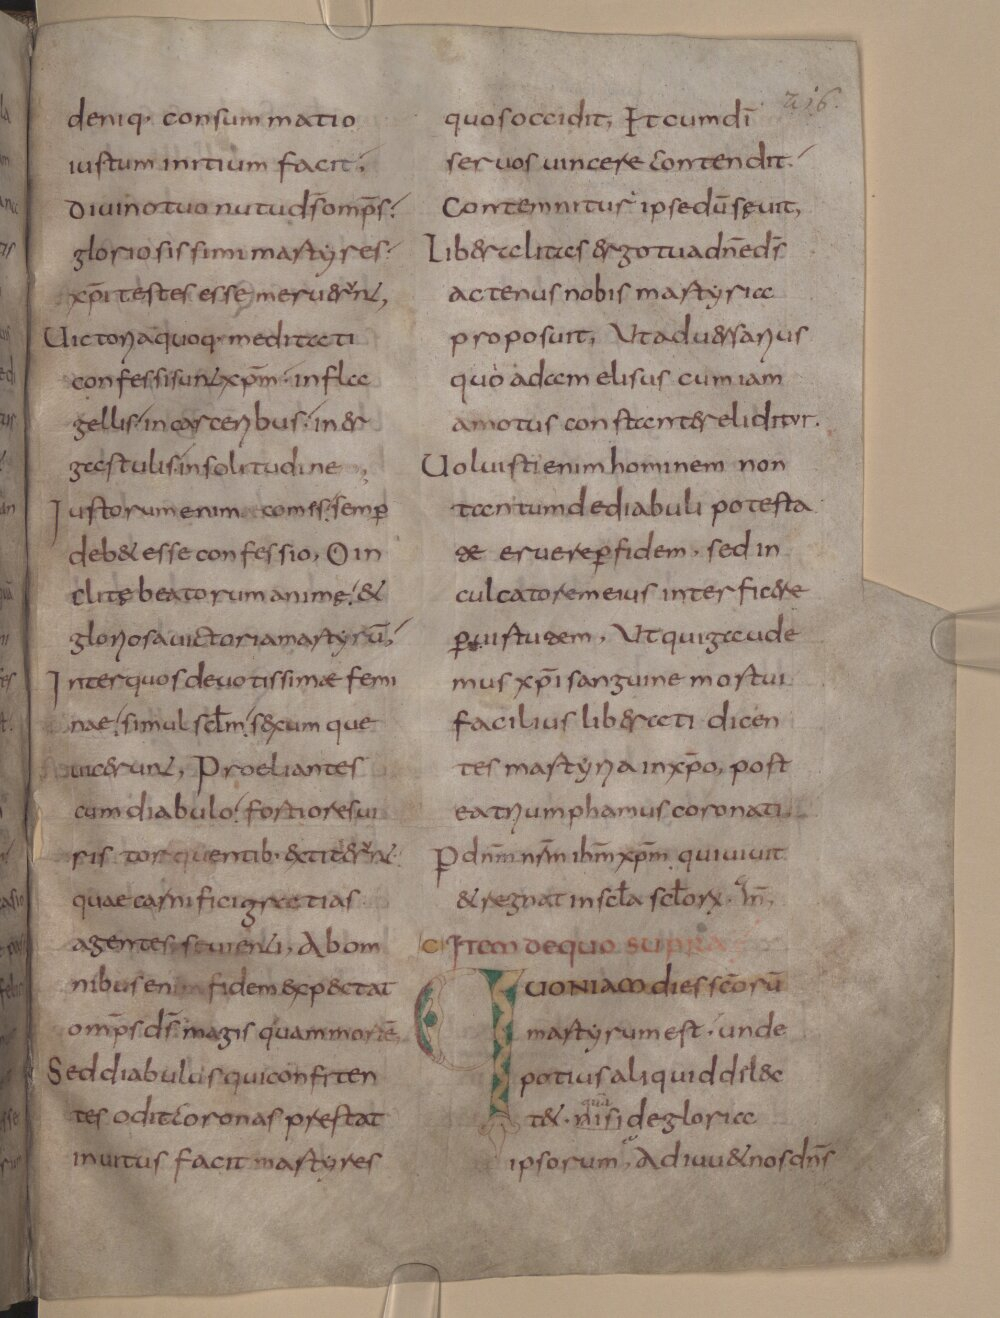 216.
deniq· consummatio
iustum initium facit;
Divino tuo nutu ds̄ omp̄s;
gloriosissimi martyres;
xp̄i testes esse meruer̄,
Victoria quoq· meditati
confessi sunt xp̄m· in fla
gellis; in carceribus; in er
gastulis; in solitudine;
Iustorum enim comes; semp̄
debet esse confessio, O in
clitę beatorum animę; &
gloriosa victoria martyrū;
Inter quos devotissimæ femi
nae; simul sc̄lm; sexum que
vicerunt, Proeliantes
cum diabulo; fortiores vi
ris torquentib· extiter̄
quae carnifici gratias
agentes sevienti, Ab om
nibus enim fidem expectat
omp̄s ds̄ magis quam mortē,
Sed diabulus qui confiten
tes odit coronas prestat
invitus facit martyres
quos occidit, Et cum dī
servos vincere contendit;
Contemnitur ipse dū sęvit,
Liber&alitas ergo tua dn̄e ds̄
actenus nobis martyria
proposuit, Ut adversarius
quo adam elisus cum iam
amotus constanter eliditur.
Voluisti enim hominem non
tantum de diabuli potesta
te eruere p̄ fidem, sed in
culcatorem eius interficere
p̄ virtutem, Ut qui gaude
mus xp̄i sanguine mortui
facilius liberati dicen
tes martyria in xp̄o, post
ea triumphamus coronati
P̄ dn̄m nr̄m ihm̄ xp̄m qui vivit
& regnat in sc̄la sc̄lorx· m̄,
Item de quo supra
QUONIAM dies sc̄orū
martyrum est; unde
potius aliquid delec
tet· nisi qua de gloria
ipsorum, Adiuvet nos dn̄s